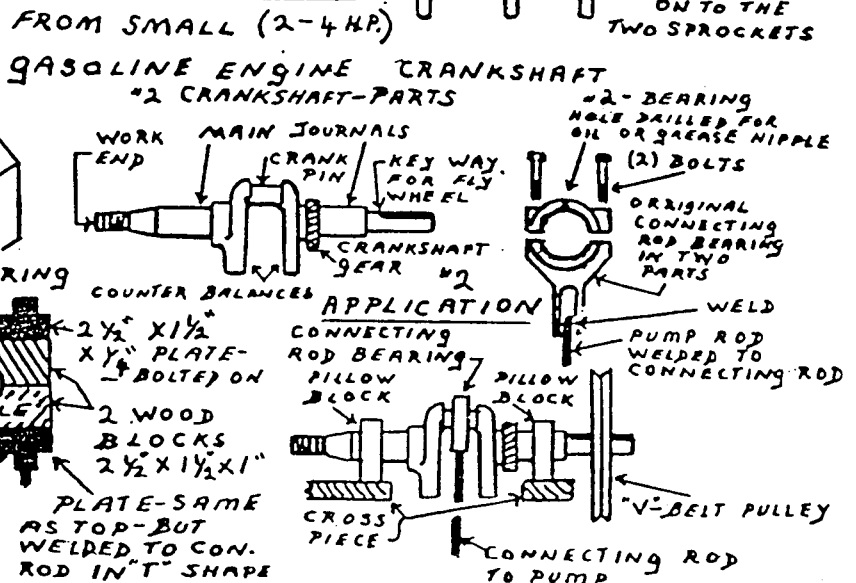 FROM SMALL (2-4 H.P.)
ON TO THE
TWO SPROCKETS
GASOLINE ENGINE CRANKSHAFT
#2 CRANKSHAFT-PARTS
WORK
END
MAIN JOURNALS
CRANK
PIN
KEY WAY
FOR FLY
WHEEL
CRANKSHAFT
GEAR
COUNTER BALANCES
#2-BEARING
HOLE DRILLED FOR
OIL OR GREASE NIPPLE
(2) BOLTS
ORIGINAL
CONNECTING
ROD BEARING
IN TWO
PARTS
WELD
PUMP ROD
WELDED TO
CONNECTING ROD
RING
2 1/2" X 1 1/2"
X 1/4" PLATE-
BOLTED ON
LE
2 WOOD
BLOCKS
2 1/2" X 1 1/2 X 1"
PLATE-SAME
AS TOP-BUT
WELDED TO CON.
ROD IN "T" SHAPE
#2
APPLICATION
CONNECTING
ROD BEARING
PILLOW
BLOCK
PILLOW
BLOCK
CROSS
PIECE
"V"-BELT PULLEY
CONNECTING ROD
TO PUMP